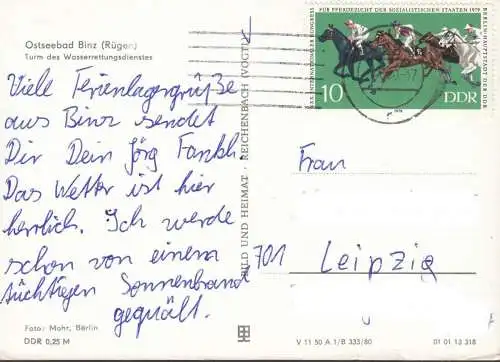 Ostseebad Binz (Rügen)
Turm des Wasserrettungsdienstes
Viele Ferienlagergrüße
aus Binz sendet
Dir Dein Jörg
Das Wetter ist hier
herrlich. Ich werde
schon von einem
tüchtigen Sonnenbrand
gequält.
Foto: Mohr, Berlin
DDR 0,25 M
BILD UND HEIMAT · REICHENBACH (VOGTL)
FÜR PFERDEZUCHT DER SOZIALISTISCHEN STAATEN 1979
BERLIN-HAUPTSTADT DER DDR
XXX. INTERNATIONALER KONGRESS
10
DDR
Frau
701
Leipzig
V 11 50 A 1/B 333/80
01 01 13 318